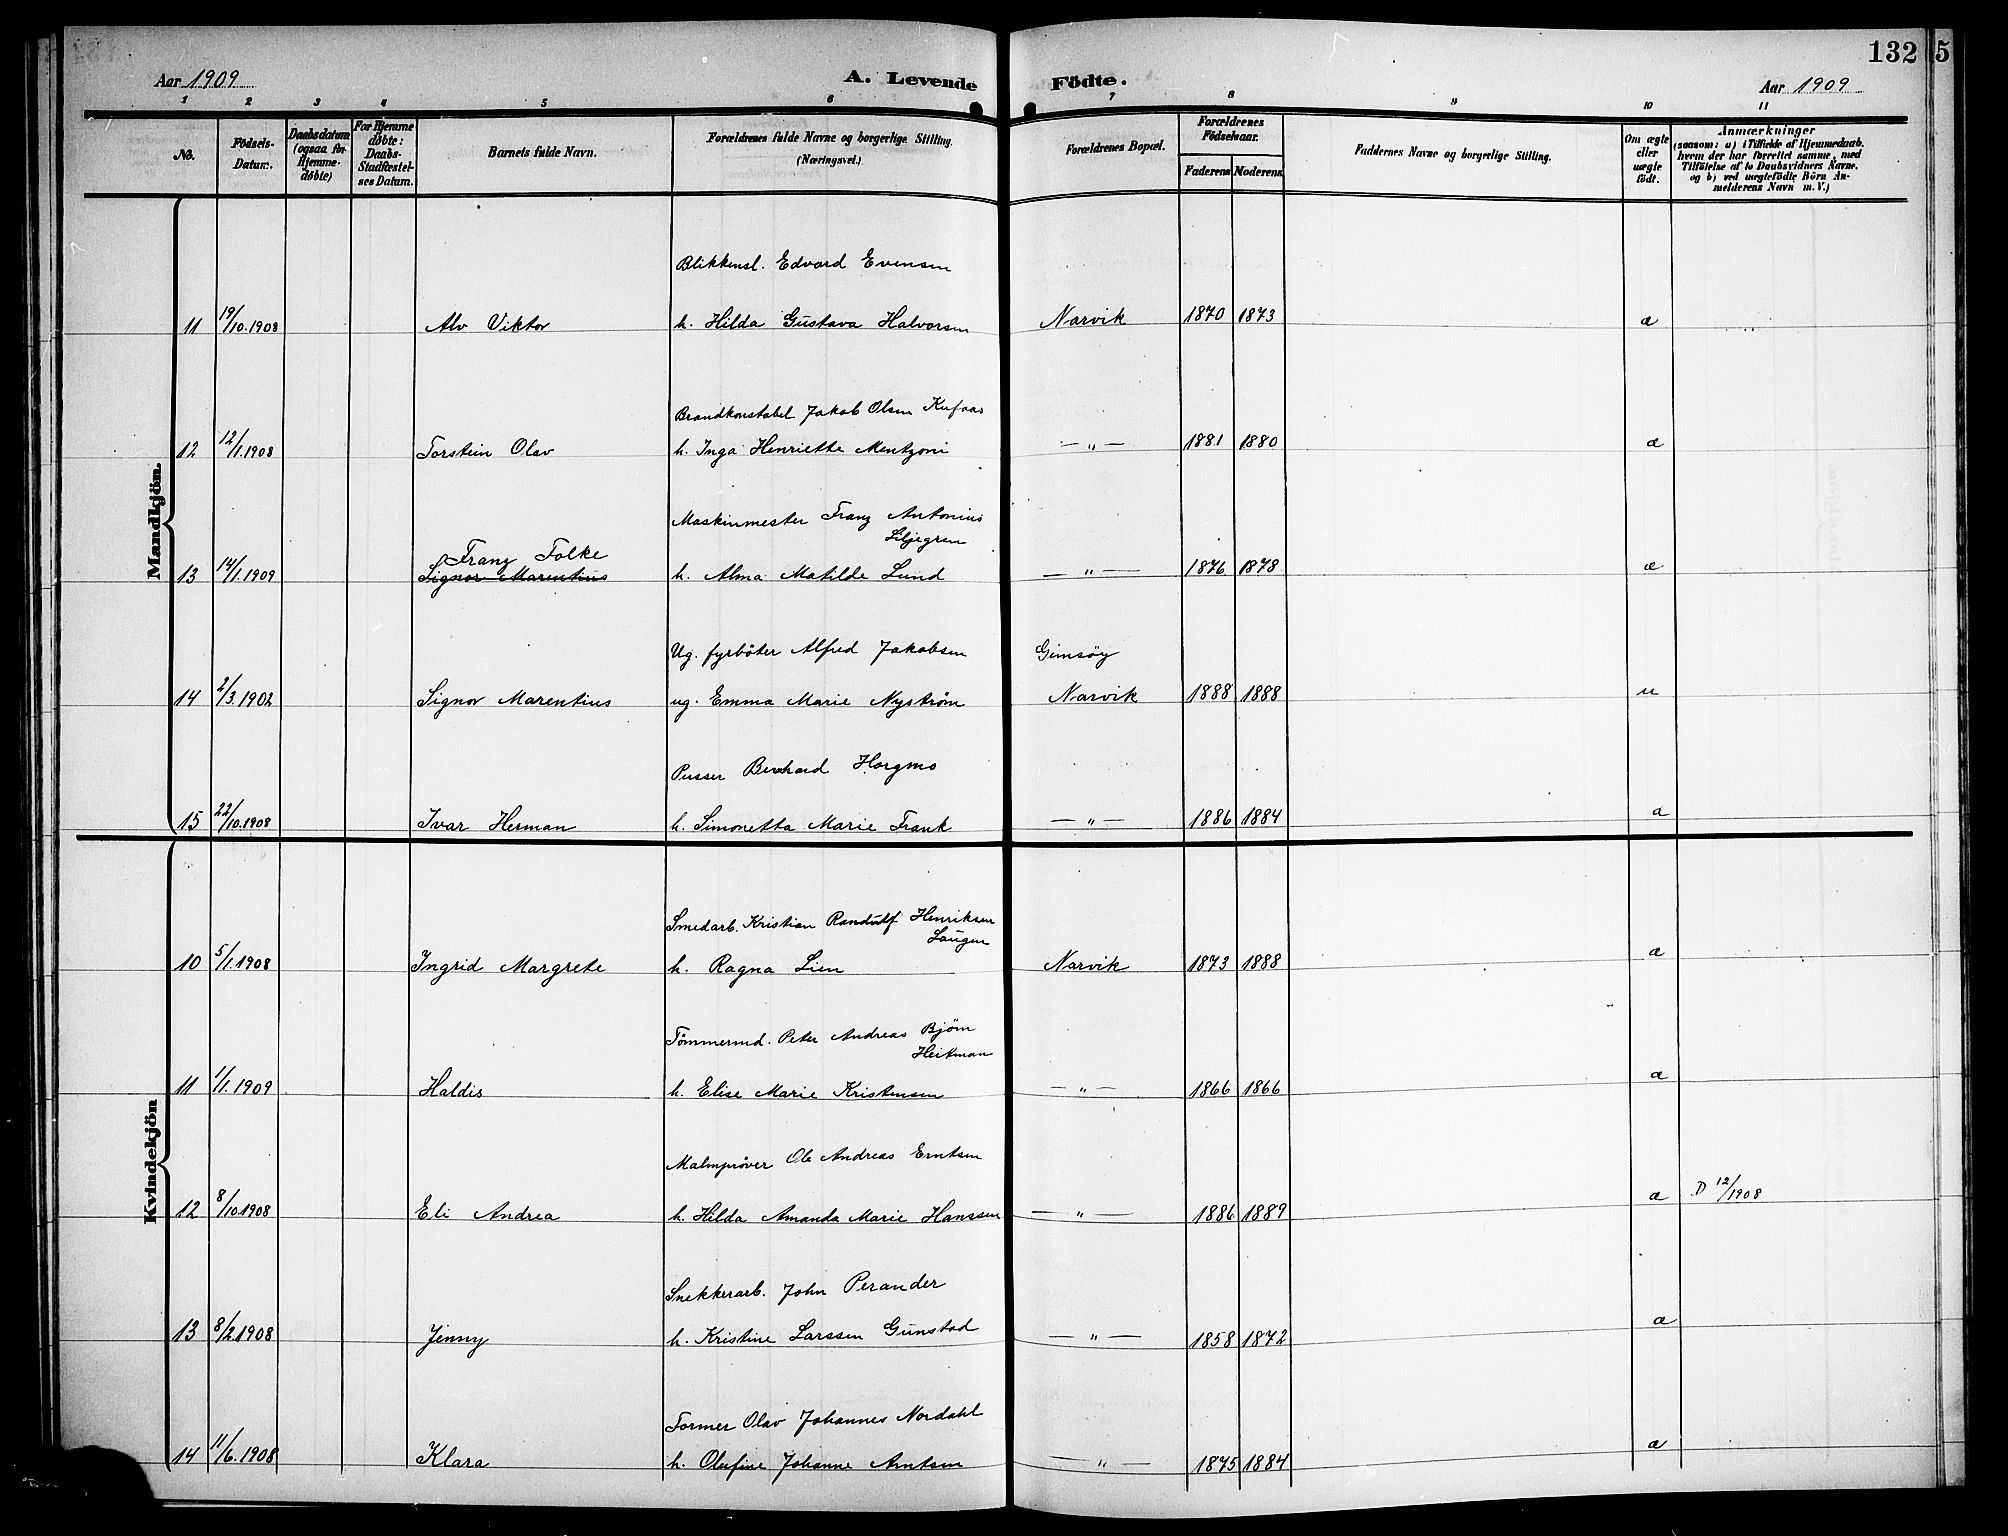 Aar 1909
A. Levende Födte.
132 5
Aar 1909
1 2 3 4 5 6 7 8 9 10 11
No.
Födsels-Datum.
Daabsdatum (ogsaa for Hjemme-döbte)
For Hjemme döbte: Daabs-Stadfæstel-ses Datum.
Barnets fulde Navn.
Forældrenes fulde Navne og borgerlige Stilling.
(Næringsvei.)
Forældrenes Bopæl.
Forældrenes Födselsaar.
Faderens Moderens
Faddernes Navne og borgerlige Stilling.
Om ægte eller uægte födt.
Anmærkninger
(saasom: a) i Tilfælde af Hjemmedaab.
hvem der har forrettet samme, med
Tilföielse af to Daabsvidners Navne.
og b) ved uægtefödte Börn An-
melderens Navn m. V.)
Mandkjön.
Blikkensl. Edvard Evensen
11 19/10.1908 Alv Viktor h. Hilda Gustava Halvorsen Narvik 1870 1873 æ
Brandkonstabel Jakob Olsen Kufaas
12 12/1.1908 Torstein Olav h. Inga Henriette Mentzoni — „ — 1881 1880 æ
Maskinmester Franz Antonius
Liljegren
Franz Folke
13 14/1.1909 Signor Marentius h. Alma Matilde Lund — „ — 1876 1878 æ
Ug. fyrböter Alfred Jakobsen Gimsöy
14 2/3.1902 Signor Marentius ug. Emma Marie Nyström Narvik 1888 1888 u
Pusser Bernhard Horgmo
15 22/10.1908 Ivar Herman h. Simonetta Marie Frank — „ — 1886 1884 æ
Kvindekjön
Smedarb. Kristian Randulf Henriksen
Laugen
10 5/1.1908 Ingrid Margrete h. Ragna Lien Narvik 1873 1888 æ
Tömmermd. Peter Andreas Björn
Heitman
11 1/1.1909 Haldis h. Elise Marie Kristensen — „ — 1866 1866 æ
Malmpröver Ole Andreas Erntsen
12 8/10.1908 Eli Andrea h. Hilda Amanda Marie Hanssen — „ — 1886 1889 æ D 12/1908
Snekkerarb. John Perander
13 8/2.1908 Jenny h. Kristine Larssen Gunstad — „ — 1858 1872 æ
Former Olav Johannes Nordahl
14 11/6.1908 Klara h. Olufine Johanne Arntsen — „ — 1875 1884 æ